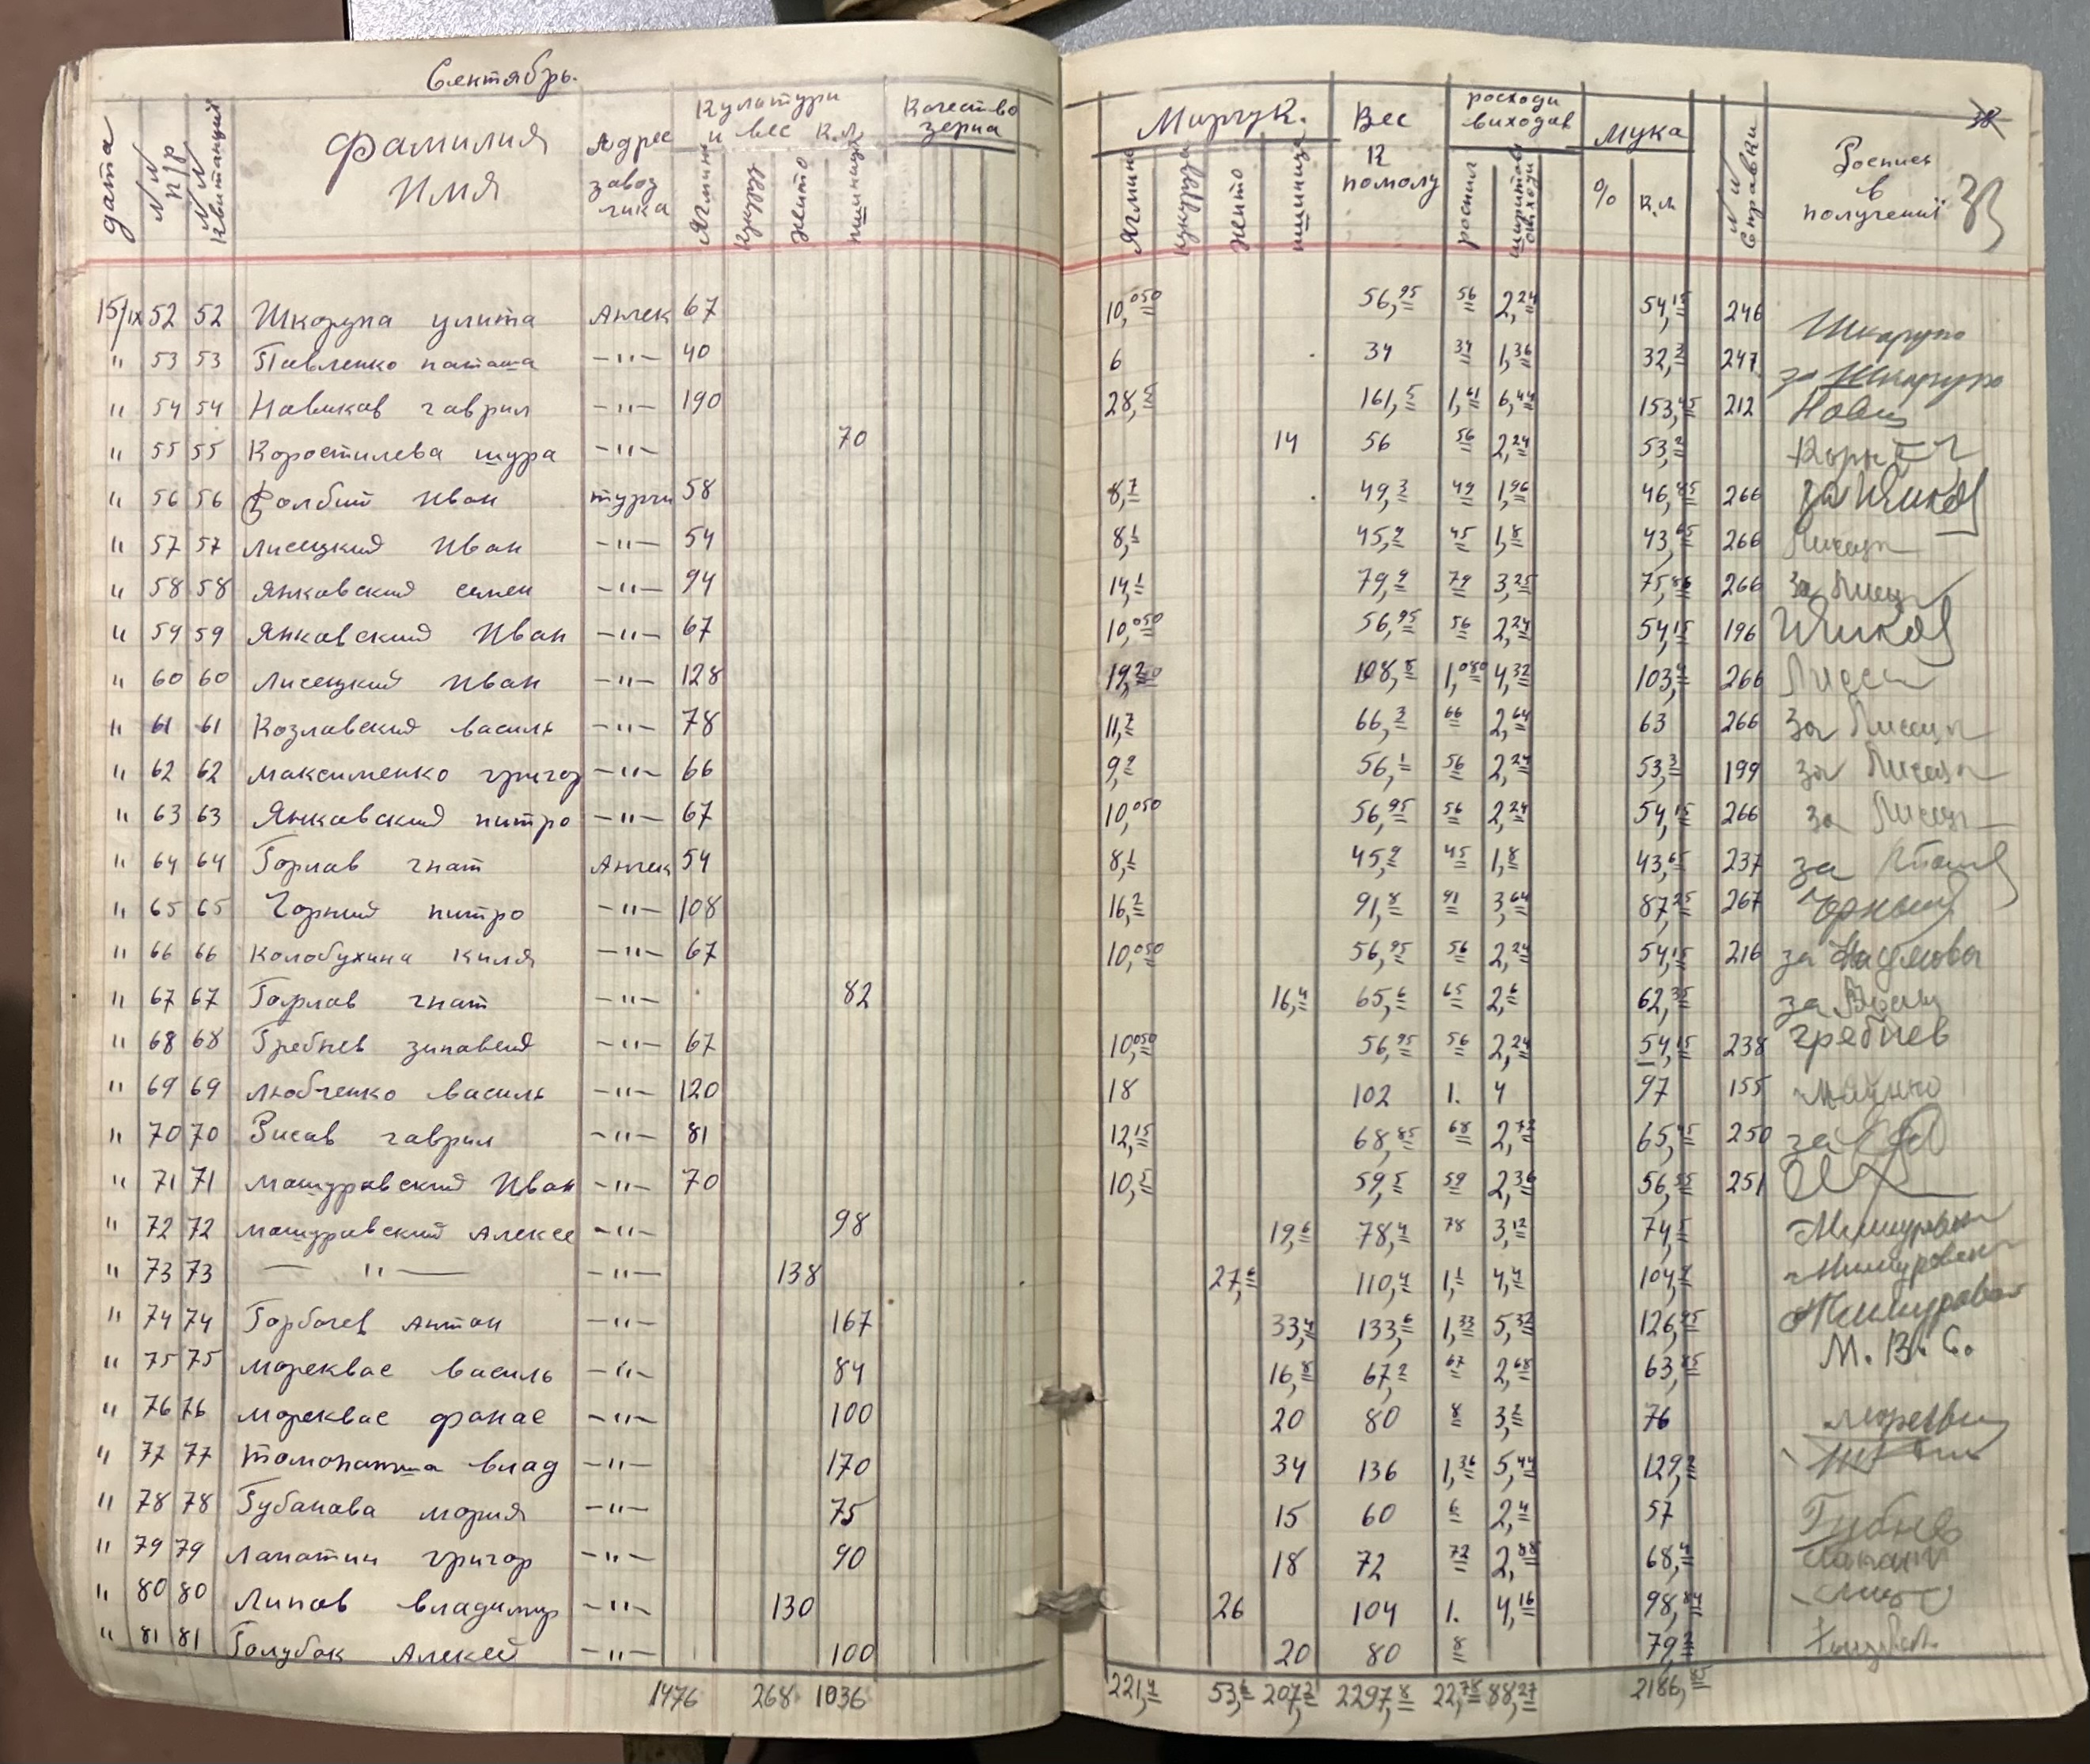 Сентябрь.
38
дата
N N п/р
N N квитанций
Фамилия Имя
Адрес завоз чика
Культури и вес к.л.
Ягмина
кукуруз
жито
пшиница
Качество зерна
Мирчук.
Ягмина
кукуруза
жито
пшиница
Вес к помолу
росходи виходав
роспил
Мука
%
к.л
N N Справки
Роспись в получении
15/IX 52 52 Шкорупа улита Анчек 67 10,050 56,95 56 2,24 54,15 246 Шкарупо
" 53 53 Павленко наташа —"— 40 6 34 34 1,36 32,3 247 за Шкарупо
" 54 54 Новиков гаврил —"— 190 28,5 161,5 1,61 6,44 153,45 212 Новиц
" 55 55 Коростилева шура —"— 70 14 56 56 2,24 53,2
" 56 56 Иван турчи 58 8,7 49,3 49 1,96 46,85 266 за
" 57 57 Лисецкий Иван —"— 54 8,1 45,9 45 1,8 43,65 266 Лисецк
" 58 58 Янковский семен —"— 94 14,1 79,9 79 3,25 75,86 266 за Лисец
" 59 59 Янковский Иван —"— 67 10,050 56,95 56 2,24 54,15 196
" 60 60 Лисецкий Иван —"— 128 19,2 108,8 1,080 4,32 103,4 266
" 61 61 Козлавский василь —"— 78 11,7 66,3 66 2,64 63 266 за Лисецк
" 62 62 максименко григор —"— 66 9,9 56,1 56 2,24 53,3 199 за Лисецк
" 63 63 Янкавский питро —"— 67 10,050 56,95 56 2,24 54,15 266 за Лисец
" 64 64 Горлав гнат Анчек 54 8,1 45,9 45 1,8 43,65 237 за
" 65 65 Чорний питро —"— 108 16,2 91,8 91 3,64 87,25 267 Чорный
" 66 66 Колобухина Киля —"— 67 10,050 56,95 56 2,24 54,15 216 за Наумова
" 67 67 Горлав гнат —"— 82 16,4 65,6 65 2,6 62,35 за
" 68 68 Гребнев зинавей —"— 67 10,050 56,95 56 2,24 54,15 238 гребнев
" 69 69 Любченко василь —"— 120 18 102 1. 4 97 155
" 70 70 Зисав гаврил —"— 81 12,15 68,85 68 2,72 65,45 250 за
" 71 71 машуравский Иван —"— 70 10,5 59,5 59 2,36 56,55 251
" 72 72 машуравский Алексе —"— 98 19,6 78,4 78 3,12 74,5
" 73 73 — " — —"— 138 27,6 110,4 1,1 4,4 104,9
" 74 74 Горбачев Антон —"— 167 33,4 133,6 1,33 5,32 126,95
" 75 75 мореквас василь —"— 84 16,8 67,2 67 2,68 63,85 М. В. С.
" 76 76 мореквас фанас —"— 100 20 80 8 3,2 76
" 77 77 Томопатша влад —"— 170 34 136 1,36 5,44 129,2
" 78 78 Губанова мория —"— 75 15 60 6 2,4 57
" 79 79 Лапатин григор —"— 90 18 72 72 2,88 68,4
" 80 80 Липов владимир —"— 130 26 104 1. 4,16 98,84
" 81 81 Голубок Алексей —"— 100 20 80 8 79,2
1476 268 1036 221,4 53,6 207,2 2297,8 22,78 88,27 2186,85